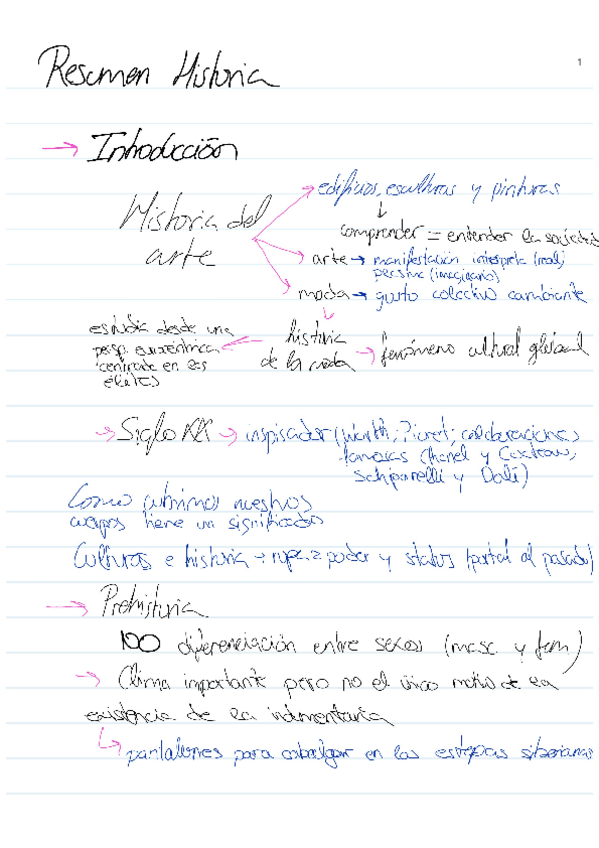 1
Resumen Historia
→ Introducción
Historia del arte
edificios, esculturas y pinturas
↓
comprender = entender la sociedad
arte → manifestación interpreta (real)
(imaginario)
moda → gusto colectivo cambiante
historia de la moda → fenómeno cultural global
estudia desde una
persp. eurocéntrica
centrada en las
élites
→ Siglo XX → inspirador (Worth, Poiret; colaboraciones
famosas Chanel y Cocteau,
Schiparelli y Dalí)
Como cubrimos nuestros
cuerpos tiene un significado
Culturas e historia → ropa = poder y status (portal al pasado)
→ Prehistoria
NO diferenciación entre sexos (masc. y fem)
→ Clima importante pero no el único motivo de la
existencia de la indumentaria
pantalones para cabalgar en las estepas siberianas